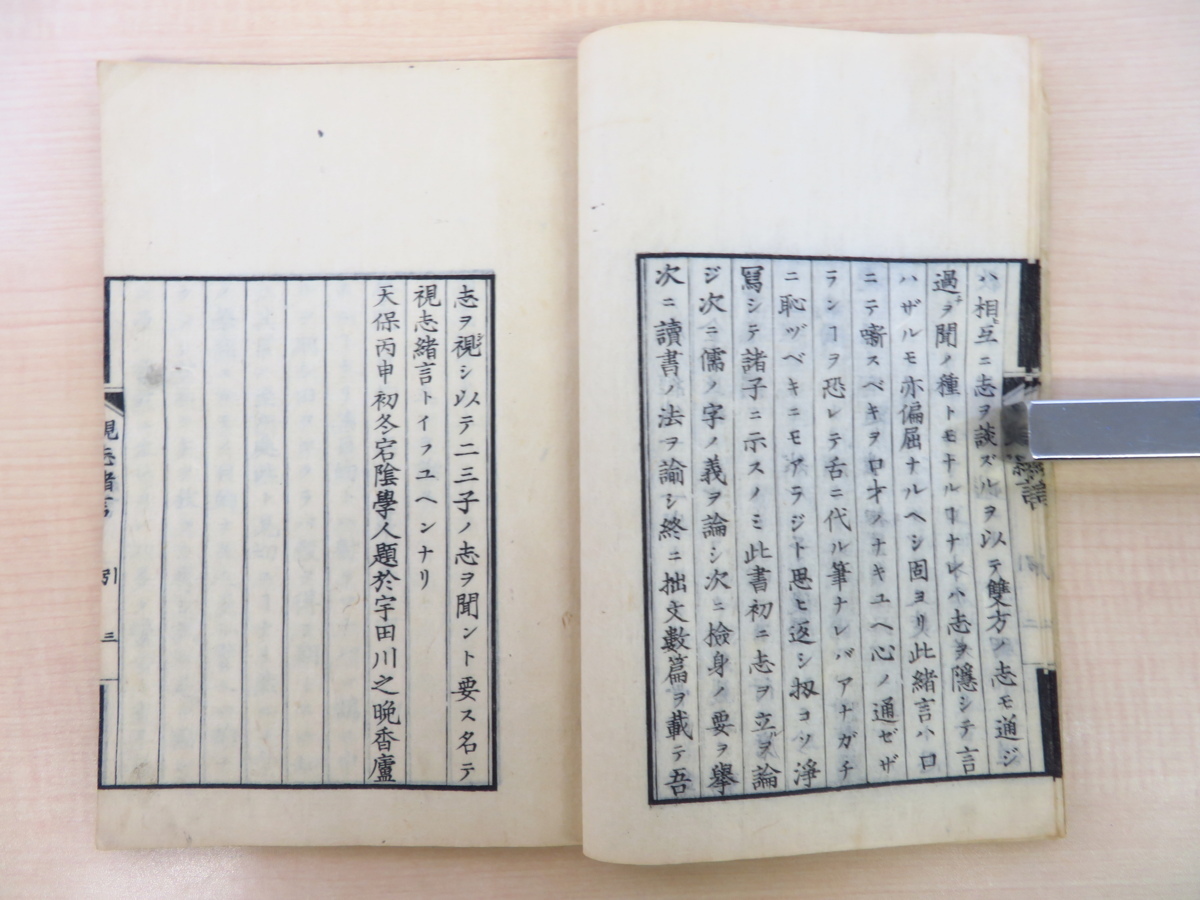 ハ相互ニ志ヲ談ズルヲ以テ雙方ノ志モ通ジ
過ヲ聞ノ種トモナルヿナレハ志ヲ隱シテ言
ハザルモ亦偏屈ナルヘシ固ヨリ此緒言ハ口
ニテ噺スベキヲ口才ノナキユヘ心ノ通ゼザ
ランヿヲ恐レテ舌ニ代ル筆ナレバアナガチ
ニ恥ヅベキニモアラジト思ヒ返シ扨コソ淨
寫シテ諸子ニ示スノミ此書初ニ志ヲ立ヲ論
ジ次ニ儒ノ字ノ義ヲ論シ次ニ撿身ノ要ヲ擧
次ニ讀書ノ法ヲ諭シ終ニ拙文數篇ヲ載テ吾
志ヲ視シ以テ二三子ノ志ヲ聞ント要ス名テ
視志緒言トイフユヘンナリ
天保丙申初冬宕陰學人題於宇田川之晩香廬
視志緒言 引 三